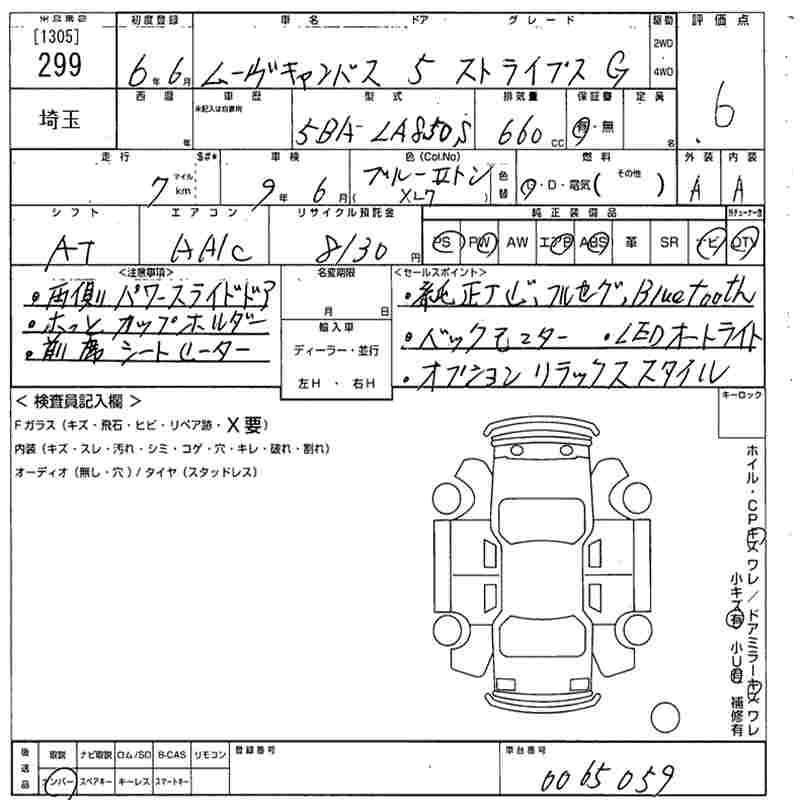 [1305]
299
埼玉
初度登録 車名 ドア グレード 駆動 評価点
6年6月 ムーヴキャンバス 5 ストライプス G 2WD 4WD
6
西暦 車歴 型式 排気量 保証書 定員
未記入は自家用
年 5BA-LA850S 660cc 有・無 名
走行 $#* 車検 色(Col.No) 燃料 外装 内装
7 マイル km 9年6月 ブルーIIトン ( XL7 ) 色替 ・D・電気( その他 ) A A
シフト エアコン リサイクル預託金 純正装備品
AT AAC 8130円 PS PW AW エアB ABS 革 SR ナビ TV
<注意事項> 名変期限 <セールスポイント>
・両側パワースライドドア
・ホっとカップホルダー
・前席シートヒーター
月 日
輸入車
ディーラー・並行
左H・右H
・純正ナビ、フルセグ、Bluetooth
・バックモニター ・LEDオートライト
・オプション リラックススタイル
<検査員記入欄> キーロック
Fガラス(キズ・飛石・ヒビ・リペア跡・X要)
内装(キズ・スレ・汚れ・シミ・コゲ・穴・キレ・破れ・割れ)
オーディオ(無し・穴)/タイヤ(スタッドレス)
ホイル・CPキズ ワレ/ドアミラーキズ ワレ
小キズ有 小U有 補修有
後送品 取説 ナビ取説 ロム/SD B-CAS リモコン 登録番号 車台番号
ナンバー スペアキー キーレス スマートキー 0065059